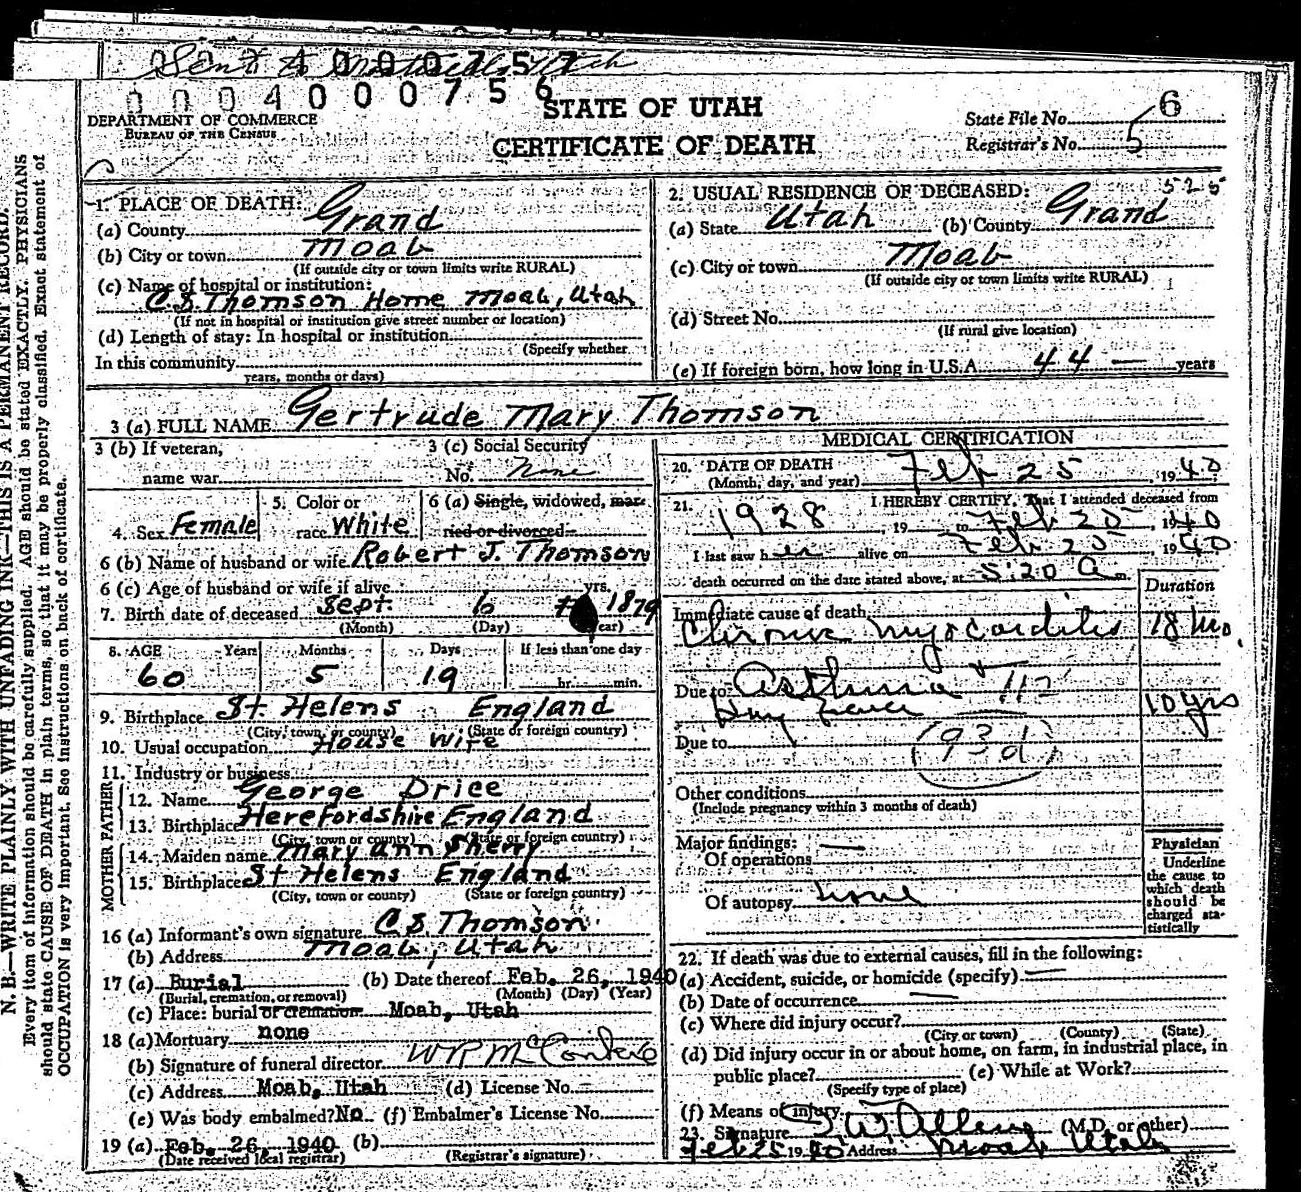 0004000756
STATE OF UTAH
CERTIFICATE OF DEATH
DEPARTMENT OF COMMERCE
BUREAU OF THE CENSUS
State File No. 6
Registrar's No. 5
N. B.—WRITE PLAINLY WITH UNFADING INK—THIS IS A PERMANENT RECORD.
Every item of information should be carefully supplied. AGE should be stated EXACTLY. PHYSICIANS
should state CAUSE OF DEATH in plain terms, so that it may be properly classified. Exact statement of
OCCUPATION is very important. See instructions on back of certificate.
1. PLACE OF DEATH:
(a) County Grand
(b) City or town Moab
(If outside city or town limits write RURAL)
(c) Name of hospital or institution:
C.S Thomson Home Moab, Utah
(If not in hospital or institution give street number or location)
(d) Length of stay: In hospital or institution
(Specify whether
In this community
years, months or days)
2. USUAL RESIDENCE OF DECEASED: 525
(a) State Utah (b) County Grand
(c) City or town Moab
(If outside city or town limits write RURAL)
(d) Street No.
(If rural give location)
(e) If foreign born, how long in U.S.A. 44 — years
3 (a) FULL NAME Gertrude Mary Thomson
3 (b) If veteran, 3 (c) Social Security
name war No. None
4. Sex Female 5. Color or race White 6 (a) Single, widowed, married or divorced
6 (b) Name of husband or wife Robert J. Thomson
6 (c) Age of husband or wife if alive yrs.
7. Birth date of deceased Sept. 6 1879
(Month) (Day) (Year)
8. AGE Years Months Days If less than one day
60 5 19 hr. min.
9. Birthplace St. Helens England
(City, town, or county) (State or foreign country)
10. Usual occupation House Wife
11. Industry or business
FATHER
12. Name George Price
13. Birthplace Herefordshire England
(City, town or county) (State or foreign country)
MOTHER
14. Maiden name Mary Ann Sherry
15. Birthplace St Helens England
(City, town or county) (State or foreign country)
16 (a) Informant's own signature C S Thomson
(b) Address Moab, Utah
17 (a) Burial (b) Date thereof Feb. 26, 1940
(Burial, cremation, or removal) (Month) (Day) (Year)
(c) Place: burial or cremation Moab, Utah
18 (a) Mortuary none
(b) Signature of funeral director W R McConkie
(c) Address Moab, Utah (d) License No.
(e) Was body embalmed? No (f) Embalmer's License No.
19 (a) Feb. 26, 1940 (b)
(Date received local registrar) (Registrar's signature)
MEDICAL CERTIFICATION
20. DATE OF DEATH Feb 25, 1940
(Month, day, and year)
21. I HEREBY CERTIFY, That I attended deceased from
1928 19 to Feb 25, 1940
I last saw her alive on Feb 25 1940
death occurred on the date stated above, at 5:20 a m
Duration
Immediate cause of death
Chronic myocarditis 18 mo.
Due to Asthma + 112
Hay fever 10 yrs
Due to (93d)
Other conditions
(Include pregnancy within 3 months of death)
Major findings: —
Of operations
Of autopsy none
Physician
Underline
the cause to
which death
should be
charged sta-
tistically
22. If death was due to external causes, fill in the following:
(a) Accident, suicide, or homicide (specify) —
(b) Date of occurrence —
(c) Where did injury occur?
(City or town) (County) (State)
(d) Did injury occur in or about home, on farm, in industrial place, in
public place? (e) While at Work?
(Specify type of place)
(f) Means of injury
23. Signature J. W. Allen (M.D. or other)
Feb 25 1940 Address Moab Utah